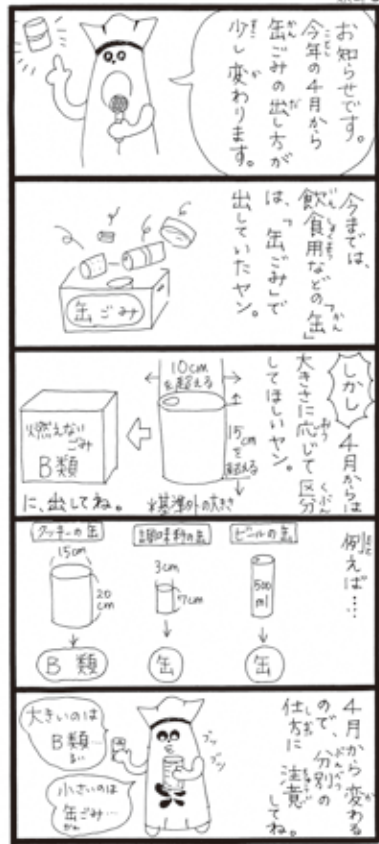 お知らせです。
今年の4月から
缶ごみの出し方が
少し変わります。
今までは、
飲食用などの「缶」
は、「缶ごみ」で
出していたヤン。
缶ごみ
しかし
4月からは
大きさに応じて区分
してほしいヤン。
10cm
を超える
15cm
を超える
*基準外の大きさ
燃えない
ごみ
B類
に、出してね。
例えば…
ビールの缶
500
ml
缶
調味料の缶
3cm
7cm
缶
クッキーの缶
15cm
20
cm
B類
4月から変わる
ので、分別の
仕方に注意
してね。
ブツ
ブツ
大きいのは
B類…
小さいのは
缶ごみ…